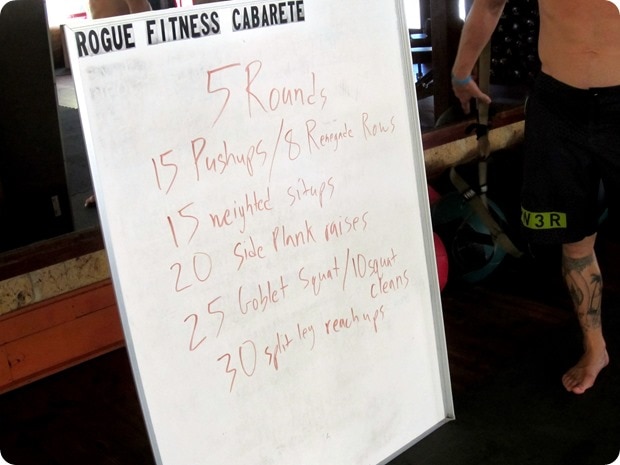 ROGUE FITNESS CABARETE
5 Rounds
15 Pushups/8 Renegade Rows
15 weighted situps
20 Side Plank raises
25 Goblet Squat/10 squat
cleans
30 split leg reach ups
V3R